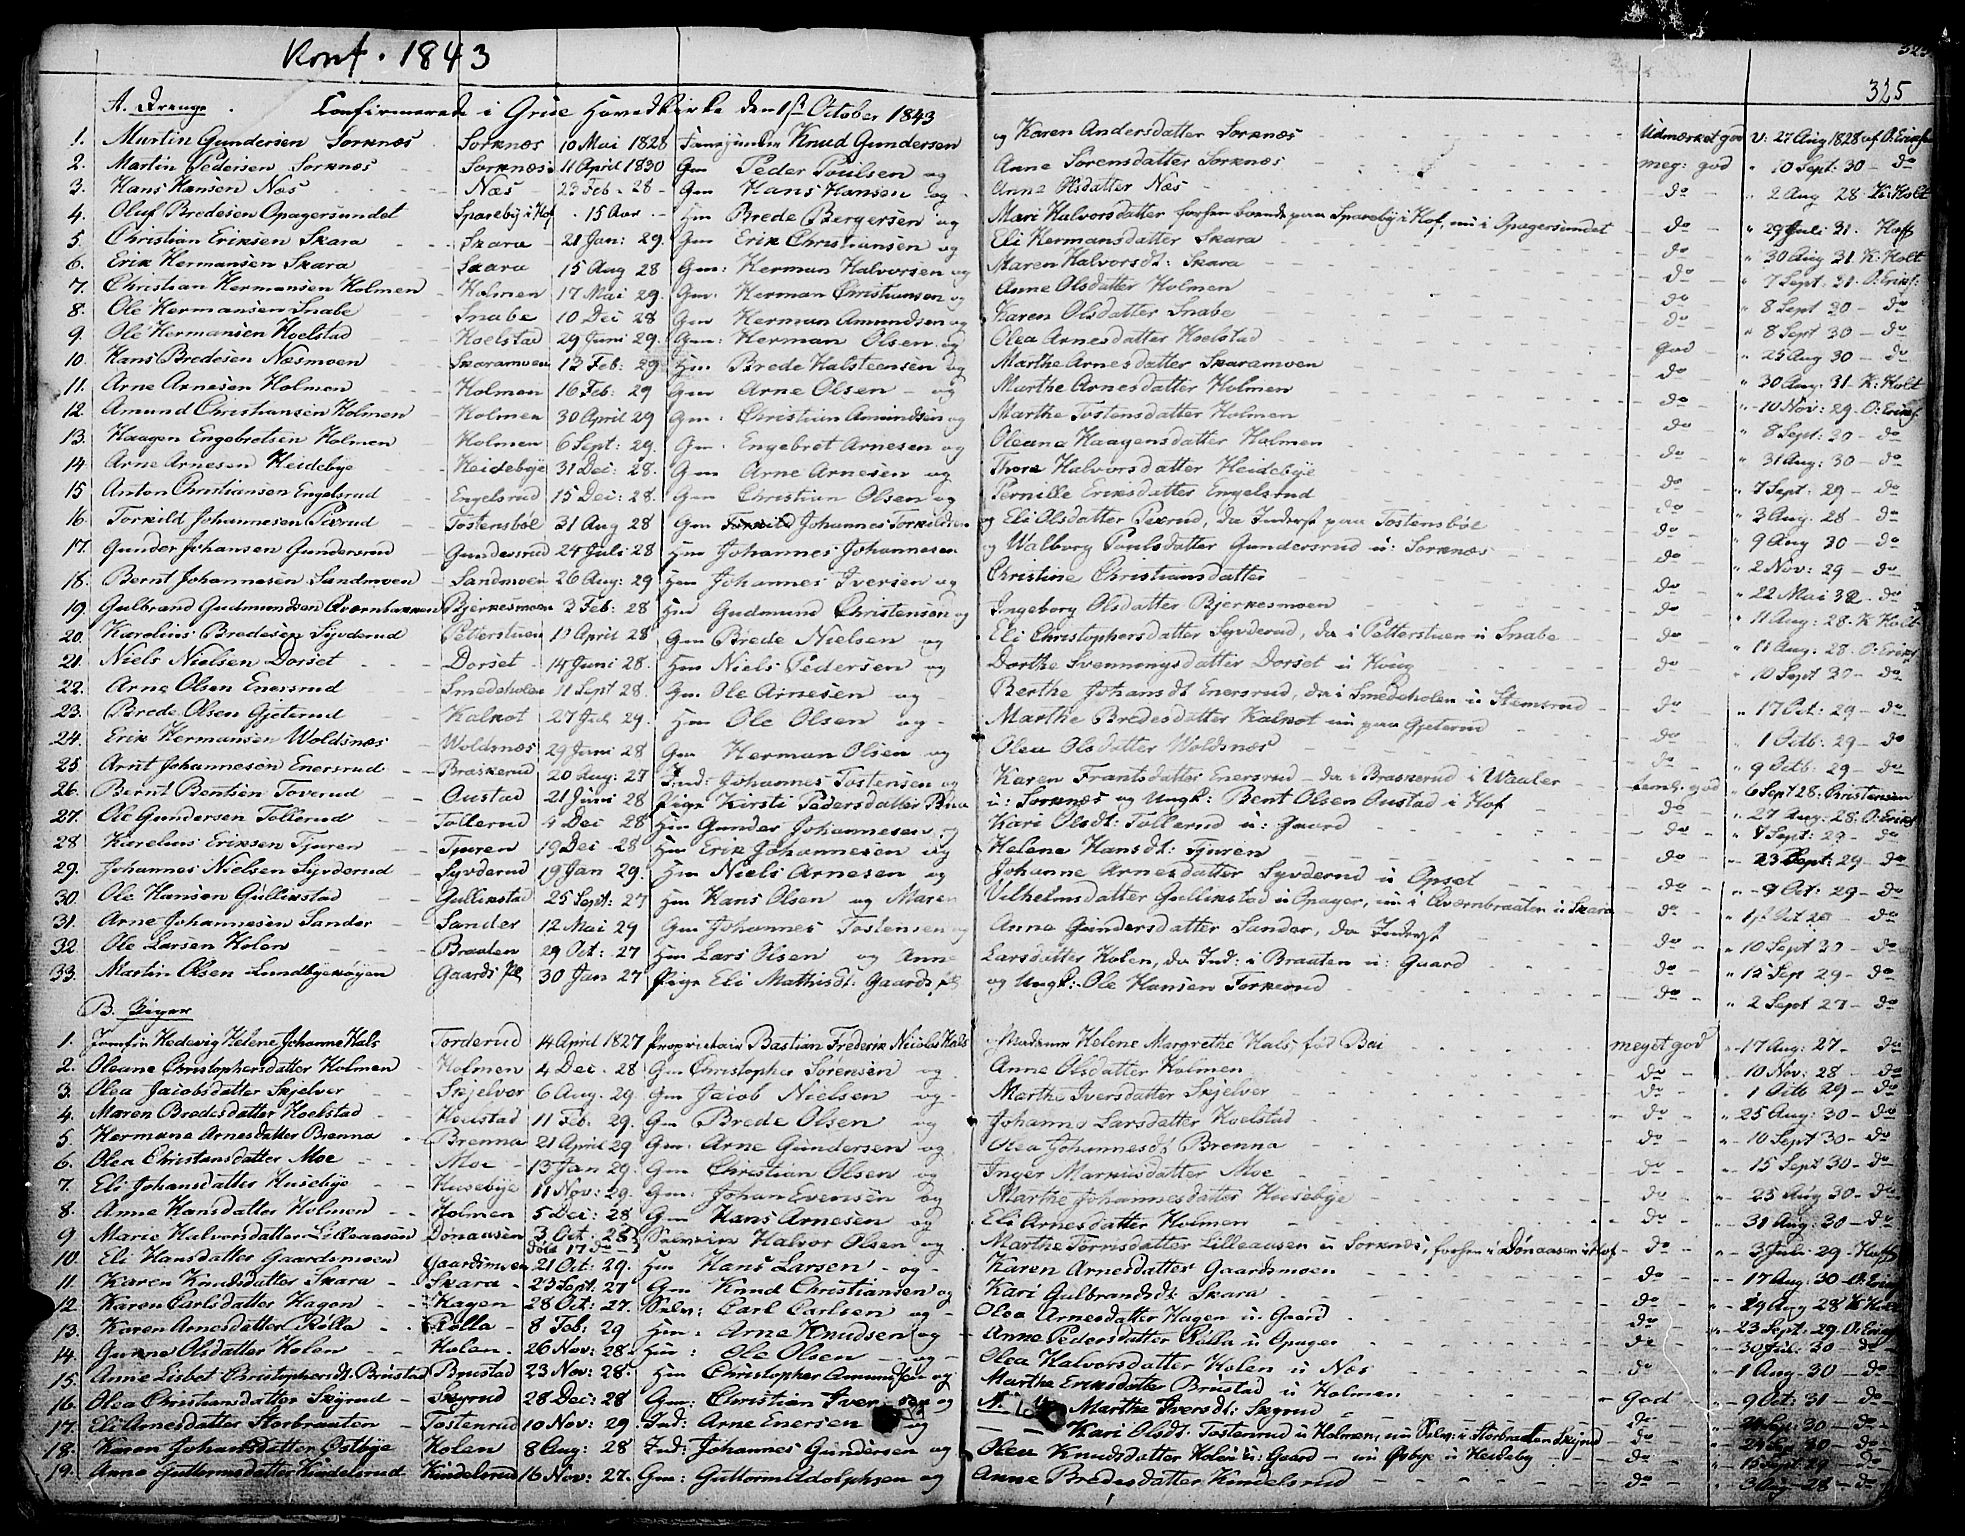 Konf. 1843
325
A. Drenge. Confirmerede i Grue Hovedkirke den 1ste October 1843
1. Martin Gundersen Sorknæs Sorknæs 10 Mai 1828 Knud Gundersen og Karen Andersdatter Sorknæs Udmærket god V: 27 Aug 1828 af O: Eriksen
2. Martin Pedersen Sorknæs Sorknæs 11 April 1830 Gm Peder Poulsen og Anne Sørensdatter Sorknæs meg: god " 10 Sept: 30 - do
3. Hans Hansen Næs Næs 23 Feb - 28 - Gm Hans Hansen og Anne Olsdatter Næs do " 2 Aug 28 K: Holt
4. Oluf Bredesen Opagersundet Spareby i Hof 15 Aar Hm Brede Bergersen og Mari Halvorsdatter forhen boende paa Spareby i Hof, nu i Opagersundet do " 29 Juli 31. Hoff
5. Christian Eriksen Skara Skara 21 Jan: 29. Gm Erik Christiansen og Eli Hermansdatter Skara do " 30 Aug 31 K: Holt
6. Erik Hermansen Skara Skara 15 Aug 28 Gm: Herman Halvorsen og Maren Halvorsdt: Skara do " 7 Sept: 31 O: Erikf:
7. Christian Hermansen Holmen Holmen 17 Mai 29. Gm: Herman Christiansen og Anne Olsdatter Holmen do " 8 Sept 30 - do
8. Ole Hermansen Snabe Snabe 10 Dec 28 Gm Herman Amundsen og Karen Olsdatter Snabe do " 8 Sept 30 - do
9. Ole Hermansen Hoelstad Hoelstad 29 Juni 29. Gm: Herman Olsen og Olea Arnesdatter Hoelstad god " 25 Aug 30 - do
10. Hans Bredesen Næsmoen Skaramoen 12 Feb: 29 Hm Brede Halsteensen og Marthe Arnesdatter Skaramoen do " 30 Aug: 31 - K: Holt
11. Arne Arnesen Holmen Holmen 16 Feb: 29 Gm Arne Olsen - og Marthe Arnesdatter Holmen do " 10 Nov: 29 - O: Erikf
12. Amund Christiansen Holmen Holmen 30 April 29 Gm: Christian Amundsen og Marthe Tostensdatter Holmen do " 8 Sept: 30 - do
13. Haagen Engebretsen Holmen Holmen 6 Sept: 29. Gm. Engebret Arnesen og Oleana Haagensdatter Holmen do " 31 Aug: 30 - do
14. Arne Arnesen Heidebye Heidebye 31 Dec: 28. Gm Arne Arnesen og Thore Halvorsdatter Heidebye do " 7 Sept: 29 - do
15 Anton Christiansen Engelsrud Engelsrud 15 Dec: 28. Gm Christian Olsen og Pernille Eriksdatter Engelsrud do " 3 Aug: 28 - do
16. Torkild Johannesen Tostensbøl 31 Aug 28 Gm Johannes Torkildsen og Eli Olsdatter da Inderst paa Tostensbøl do " 9 Aug 30 - do
17. Gunder Johansen Gundersrud Gundersrud 24 Juli 28 Hm Johannes Johannesen og Walborg Poulsdatter Gundersrud u: Sorknæs do " 2 Nov: 29 - do
18. Bernt Johannesen Sandmoen Sandmoen 26 Aug: 29 Hm Johannes Iversen og Christine Christiansdatter do " 22 Mai 32. do
19. Gulbrand Gudmundsen Qværnbakken Bjerkesmoen 2 Feb: 28 Hm Gudmund Christensen og Ingeborg Olsdatter Bjerkesmoen do " 11 Aug: 28. K Holt
20. Karelius Bredesen Syvderud Petterstuen April 28 Gm Brede Nielsen og Eli Christophersdatter Syvderud, da i Petterstuen u Snabe do " 11 Aug: 28. O: Erikf
21. Niels Nielsen Dorset Dorset 14 Juni 28. Hm Niels Pedersen og Dorthe Svenningsdatter Dorset u Haug do " 10 Sept 30 - do
22. Arne Olsen Enersrud Smedeholen 11 Sept 28. Gm. Ole Arnesen og Berthe Johansdt Enersrud, da i Smedeholen u Stemsrud do " 17 Oct: 29 - do
23. Brede Olsen Gjeterud Kalkot 27 Jul 29. Hm Ole Olsen og Marthe Bredesdatter Kalkot nu paa Gjeterud do " 1 Octb: 29 - do
24. Erik Hermansen Woldsnæs Woldsnæs 29 Juni 28 Gm Herman Olsen og Olea Olsdatter Woldsnæs do " 9 Octb: 29 - do
25 Arnt Johannesen Enersrud Braskerud 20 Aug: 27 Ind: Johannes Tostensen og Karen Frantsdatter Enersrud - da i Braskerud i Waaler temh. god " 6 Sept 28. Christensen
26. Bernt Bentsen Toverud Oustad 21 Juni 28 Pige Kirsti Pedersdatter u: Sorknæs og Ungk: Bent Olsen Oustad i Hof do " 27 Aug: 28. O: Erikf
27. Ole Gundersen Tollerud Tollerud 4 Dec 28 Hm Gunder Johannesen og Kari Olsdt: Tollerud u: Gaard do " 4 Sept: 29 - do
28 Karelius Eriksen Tjuren Tjuren 19 Dec 28 Hm Erik Johannesen og Helene Hansdt: Tjuren do " 23 Sept: 29 - do
29. Johannes Nielsen Syvderud Syvderud 19 Jan 29. Hm Niels Arnesen og Johanne Arnesdatter Syvderud u Opset do " 9 Oct: 29 - do
30. Ole Hansen Gullikstad Gullikstad 25 Sept: 27 Hm Hans Olsen og Maren Vilhelmsdatter Gullikstad u Opager, nu i Qværnbraaten u Skara do
31. Arne Johannesen Sander Sander 12 Mai 29 Gm Johannes Tostensen og Anne Gundersdatter Sander, da Inderst do " 10 Sept 30 - do
32. Ole Larsen Holen Braaten 29 Oct: 27 Hm Lars Olsen og Anne Larsdatter Holen, da Ind: i Braaten u: Gaard do " 15 Sep 29 - do
33. Martin Olsen Lundbyehøyen Gaards Pl 30 Jan 27 Pige Eli Mathisdt: Gaards pl og Ungk: Ole Hansen Torkerud do " 2 Sept 27 - do
B. Piger
1. Jomfru Hedevig Helene Johanne Hals Torderud 14 April 1827 Proprietair Bastian Frederik Nicolai Hals Madame Helene Margrethe Hals, fød Bei meget god " 17 Aug: 27 - do
2. Oleane Christophersdatter Holmen Holmen 4 Dec. 28 Gm Christopher Sørensen og Anne Olsdatter Holmen do " 10 Nov: 28 - do
3. Olea Jacobsdatter Skjelver Skjelver 6 Aug. 29 Gm Jacob Nielsen og Marthe Iversdatter Skjelver do " 1 Octb 29 - do
4. Maren Bredesdatter Hoelstad Hoelstad 11 Feb. 29. Gm Brede Olsen og Johanne Larsdatter Hoelstad do " 25 Aug: 30 - do
5. Hermane Arnesdatter Brenna Brenna 21 April 29 Gm: Arne Gundersen og Olea Johannesdt Brenna do " 10 Sept 30 - do
6. Olea Christiansdatter Moe Moe 13 Jan 29. Gm Christian Olsen og Inger Markusdatter Moe do " 15 Sept 30 - do
7. Eli Johansdatter Husebye Husebye 11 Nov: 29. Gm: Johan Evensen og Marthe Johannesdatter Husebye do " 25 Aug 30 - do
8. Anne Hansdatter Holmen Holmen 5 Dec: 28 Gm Hans Arnesen og Eli Arnesdatter Holmen do " 31 Aug: 30 - do
9 Marie Halvorsdatter Lilleaasen Dønaasen 3 Oct. 28 døbt 17 do Selveier Halvor Olsen og Marthe Torrisdatter Lilleaasen u Sorknæs, forhen i Dønaasen i Hof do " 3 Juli 29 - Hoff
10. Eli Hansdatter Gaardsmoen Gaardsmoen 21 Oct: 29. Hm Hans Larsen - og Karen Arnesdatter Gaardsmoen do " 17 Aug: 30 - O: Erikf
11. Karen Knudsdatter Skara Skara 23 Sept: 27 Gm Knud Christiansen og Kari Gulbrandsdt: Skara do " 29 Aug 28 K Holt
12 Karen Carlsdatter Hagen Hagen 28 Oct: 27. Selv: Carl Carlsen og Olea Arnesdatter Hagen u: Gaard do " 23 Sept: 29. O: Erikf
13. Karen Arnesdatter Rølla Rølla 8 Feb: 29 Hm: Arne Knudsen og Anne Pedersdatter Rølla u Opager do " 30 Feb. 30 - do
14. Gunne Olsdatter Holen Holen 26 Nov: 28 Hm: Ole Olsen og Olea Halvorsdatter Holen u Næs do " 1 Aug 30 - do
15. Anne Lisbet Christophersdt. Brustad Brustad 23 Nov: 28. Hm Christopher Amundsen og Marthe Eriksdatter Brustad u Holmen god " 9 Oct: 31 - do
16. Olea Christiansdatter Skyrud Skyrud 28 Dec: 28 Gm: Christian Iversen og Marthe Iversdt: Skyrud do
17. Eli Arnesdatter Storbraaten Tostenrud 10 Nov: 29 Ind: Arne Enersen og Kari Olsdt: Tostenrud u Holmen, nu Selv: i Storbraaten Skyrud do
18. Karen Johansdatter Østbye Holen 8 Aug: 28 Ind: Johannes Gundersen og Olea Knudsdatter Holen u: Gaard - nu Østbye u Heideby do " 15 Sept 29 - do
19. Anne Guttormsdatter Kindelsrud Kindelsrud 16 Nov: 27. Gm: Guttorm Adolphsen og Anne Bredesdatter Kindelsrud do " 3 Aug - 28 - do